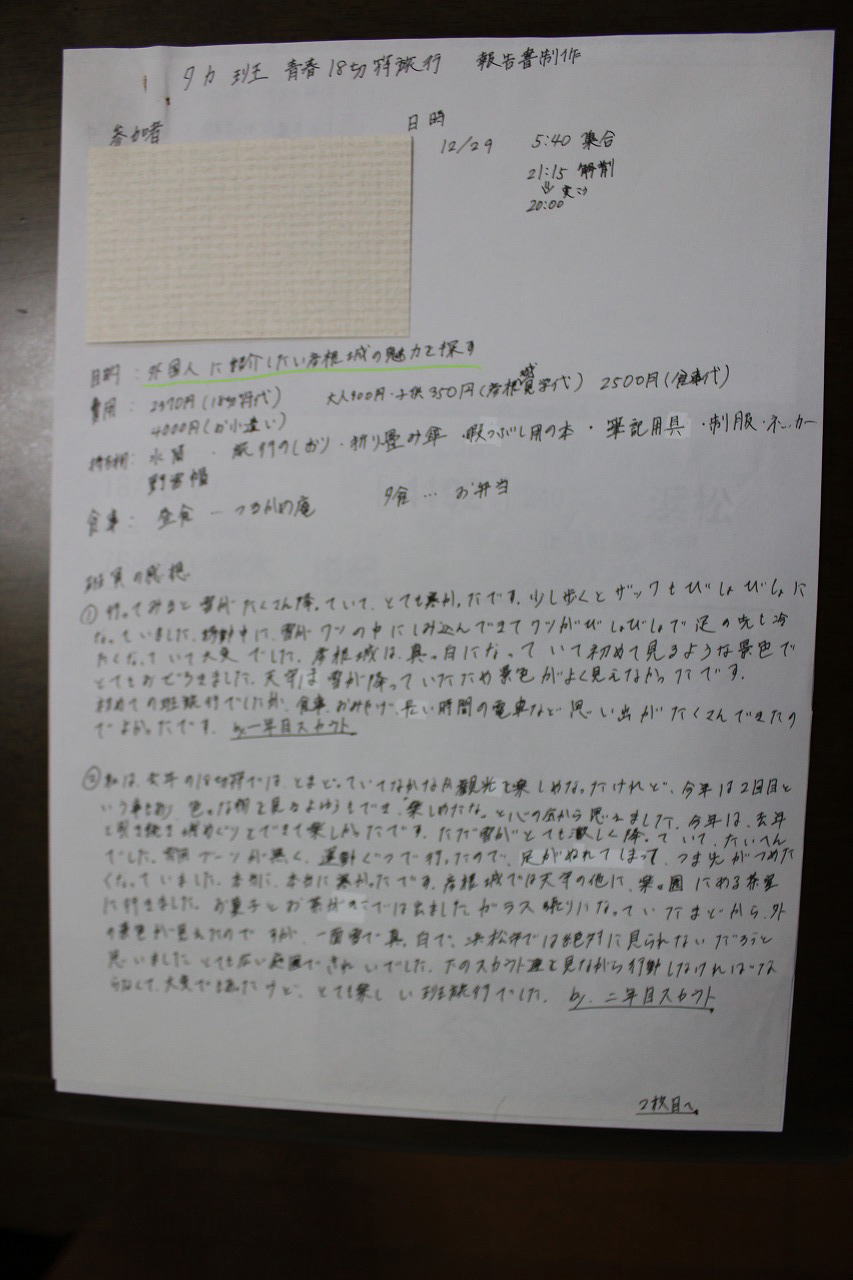 タカ班 青春18切符旅行 報告書制作
参加者
日時
12/29 5:40 集合
21:15 解散
20:00
目的：外国人に紹介したい彦根城の魅力を探す
費用：2370円(18切符代) 大人900円・子供350円(彦根城見学代) 2500円(食事代)
4000円(お小遣い)
持ち物：水筒・旅行のしおり・折り畳み傘・暇つぶし用の本・筆記用具・制服・ネッカー
野帳
食事：昼食 … つるかめ庵 夕食 … お弁当
班員の感想
① 行ってみると雪がたくさん降っていて、とても寒かったです。少し歩くとザックもびしょびしょに
なっていました。移動中に、雪がクツの中にしみ込んできてクツがびしょびしょで足の先も冷
たくなっていて大変でした。彦根城は、真っ白になっていて初めて見るような景色で
とてもおどろきました。天守は雪が降っていたため景色がよく見えなかったです。
初めての班旅行でしたが、食事、おみやげ、長い時間の電車など思い出がたくさんできたの
でよかったです。 by 一年目スカウト
② 私は、去年の18切符では、とまどっていてなかなか観光を楽しめなかったけれど、今年は2回目と
いう事もあり、色々な物を見るよゆうもでき、「楽しめたな」と心の底から思えました。今年は、去年
と引き続き城めぐりをできて楽しかったです。ただ雪がとても激しく降っていて、たいへん
でした。雪用ブーツが無く、運動ぐつで行ったので、足がぬれてしまって、つま先がつめた
くなっていました。本当に、本当に寒かったです。彦根城では天守の他に、楽々園にある茶室
に行きました。お菓子とお茶が出ました。ガラス張りになっていたまどから、外
の景色が見えたのですが、一面雪で真っ白で、浜松市では絶対に見られないだろうと
思いました。とても広い庭園できれいでした。下のスカウト達を見ながら行動しなければな
らなくて、大変でもあったけど、とても楽しい班旅行でした。 by 二年目スカウト
2枚目へ